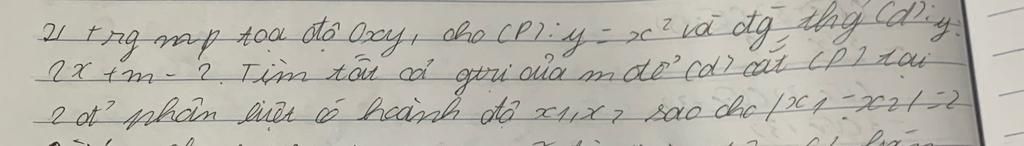 2, + trg mp tọa độ Oxy, cho (P): y = x² và đg thg (d): y =
2x + m - 2. Tìm tất cả gtri của m để (d) cắt (P) tại
2 đ' phân biệt có hoành độ x1, x2 sao cho |x1 - x2| = 2